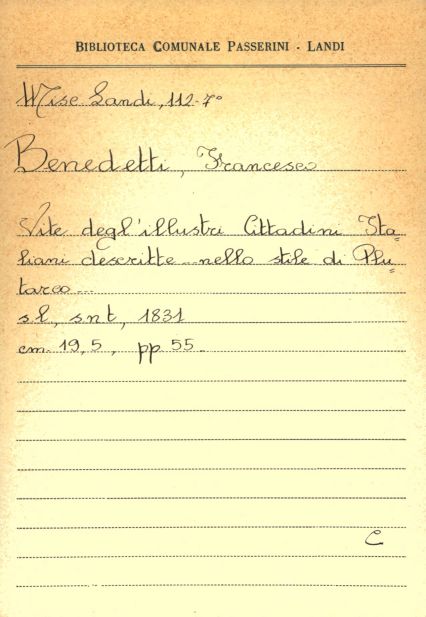 BIBLIOTECA COMUNALE PASSERINI - LANDI
Misc Landi, 112-7°
Benedetti, Francesco
Vite degl'illustri Cittadini Ita=
liani descritte... nello stile di Plu=
tarco...
s.l., snt, 1831
cm. 19,5, pp 55.
C